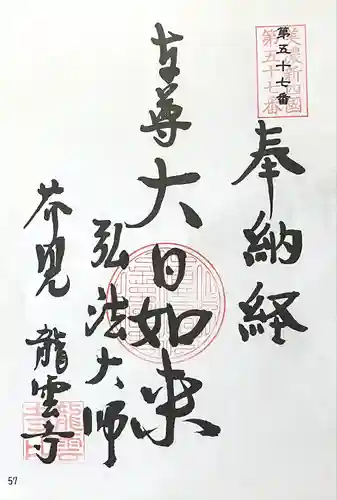 美濃新四國
第五十七番
第五十七番
奉納経
本尊大日如来
弘法大師
芥見
龍雲寺
龍雲
寺印
57